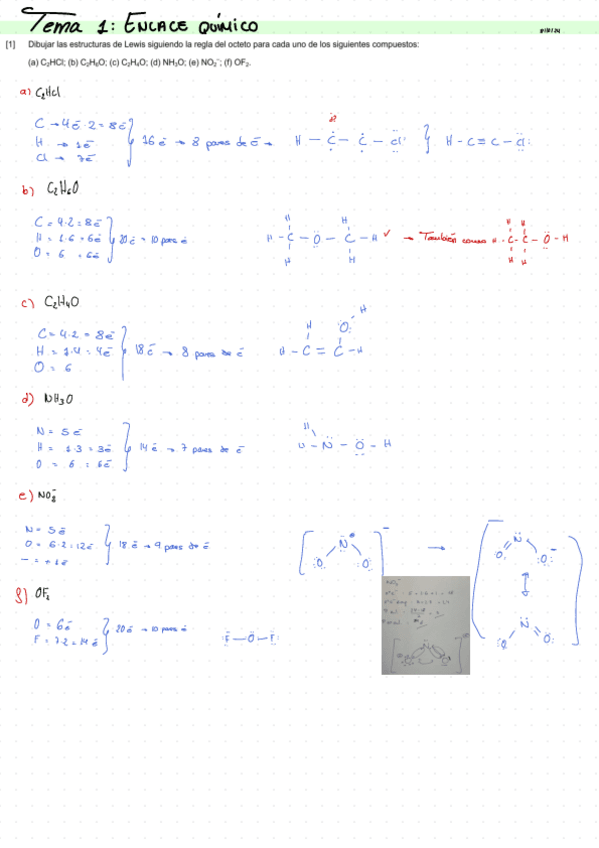 Tema 1: ENLACE QUÍMICO
[1] Dibujar las estructuras de Lewis siguiendo la regla del octeto para cada uno de los siguientes compuestos:
(a) C₂HCl; (b) C₂H₆O; (c) C₂H₄O; (d) NH₃O; (e) NO₂⁻; (f) OF₂.
a) C₂HCl
C → 4ē · 2 = 8ē
H → 1ē
Cl → 7ē
16 ē → 8 pares de ē →
H – C – C – Cl
H – C ≡ C – Cl
b) C₂H₆O
C = 4·2 = 8ē
H = 1·6 = 6ē
O = 6 = 6ē
20 ē = 10 pares ē
H – C – O – C – H
H H
H H
→ También como H – C – C – O – H
H H
H H
c) C₂H₄O
C = 4·2 = 8ē
H = 1·4 = 4ē
O = 6
18 ē → 8 pares de ē
H O H
H – C = C – H
d) NH₃O
N = 5ē
H = 1·3 = 3ē
O = 6 = 6ē
14 ē → 7 pares de ē
H
H – N – O – H
e) NO₂⁻
N = 5ē
O = 6·2 = 12ē
– = +1ē
18 ē → 9 pares de ē
N
O O
→
N
O O
N
O O
f) OF₂
O = 6ē
F = 7·2 = 14ē
20 ē → 10 pares ē
F – O – F
NO₂⁻